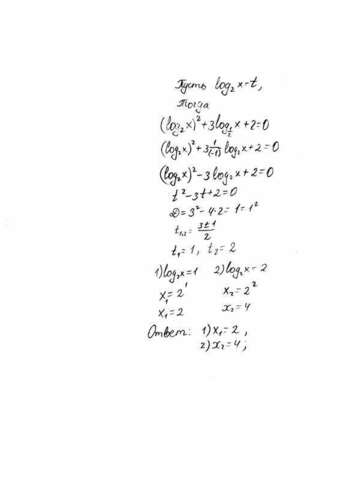 Пусть log₂x=t,
Тогда
(log₂x)²+3log_{1/2}x+2=0
(log₂x)²+3\frac{1}{(-1)}log₂x+2=0
(log₂x)²-3log₂x+2=0
t²-3t+2=0
D=3²-4·2=1=1²
t₁,₂=\frac{3±1}{2}
t₁=1, t₂=2
1)log₂x=1 2)log₂x=2
x₁=2¹ x₂=2²
x₁=2 x₂=4
Ответ: 1)x₁=2,
2)x₂=4;